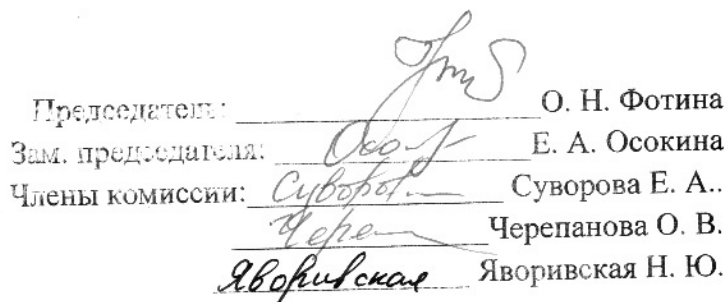 Председатель: О. Н. Фотина
Зам. председателя: Осо Е. А. Осокина
Члены комиссии: Суворов Суворова Е. А..
Чере Черепанова О. В.
Яворивская Яворивская Н. Ю.